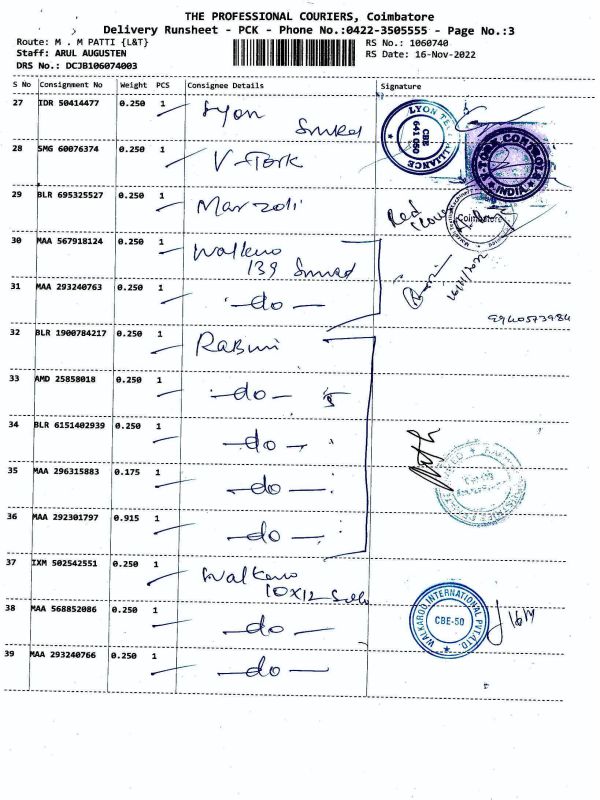 THE PROFESSIONAL COURIERS, Coimbatore
Delivery Runsheet - PCK - Phone No.:0422-3505555 - Page No.:3
Route: M . M PATTI {L&T}
RS No.: 1060740
Staff: ARUL AUGUSTEN
RS Date: 16-Nov-2022
DRS No.: DCJB106074003
S No Consignment No Weight PCS Consignee Details Signature
27 IDR 50414477 0.250 1 Lyon
CBE 641 050
28 SMG 60076374 0.250 1 V-Tork
V-TORK CONTROLS INDIA
29 BLR 695325527 0.250 1 Marzoli
Coimbatore
30 MAA 567918124 0.250 1 Walkeroo
139
16/11/2022
31 MAA 293240763 0.250 1 -do-
32 BLR 1900784217 0.250 1
33 AMD 25858018 0.250 1 -do-
34 BLR 6151402939 0.250 1 -do-
35 MAA 296315883 0.175 1 -do-
36 MAA 292301797 0.915 1 -do-
37 IXM 502542551 0.250 1
10x12
38 MAA 568852086 0.250 1 -do-
WALKAROO INTERNATIONAL PVT.LTD. CBE-50
39 MAA 293240766 0.250 1 -do-